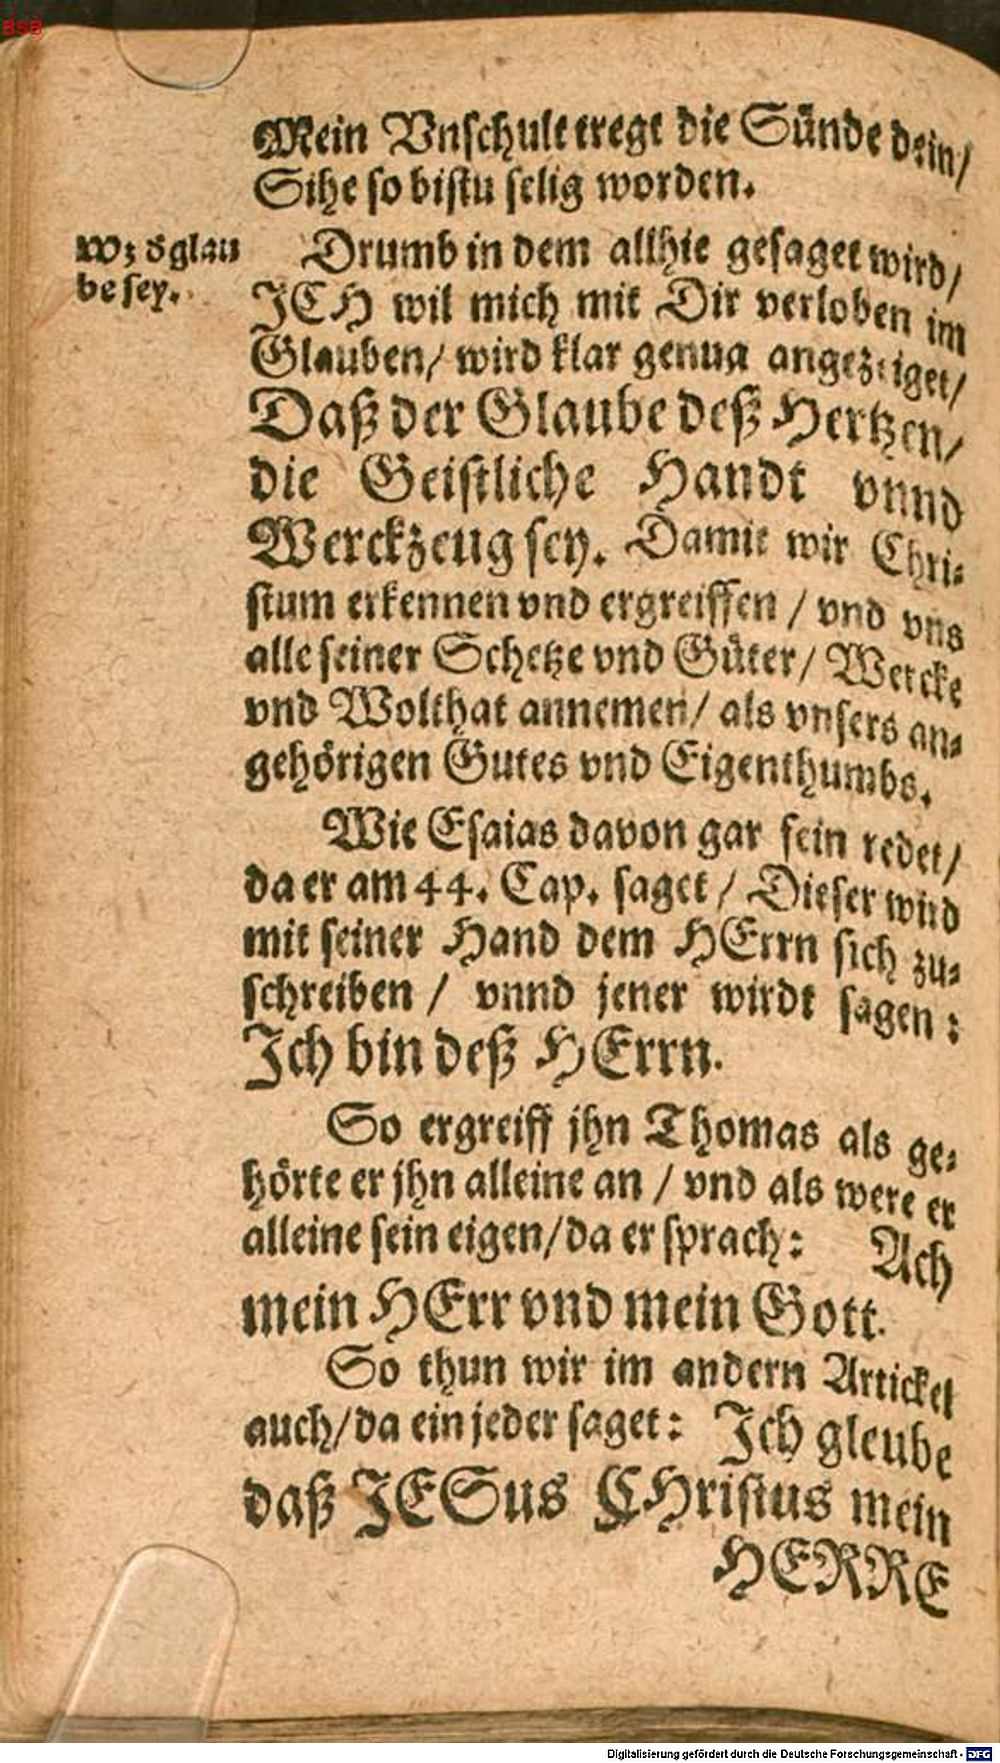 BSB
Mein Vnschult tregt die Sünde dein/
Sihe so bistu selig worden.
Wz d̕ glau
be sey.
Drumb in dem allhie gesaget wird/
JCH wil mich mit Dir verloben im
Glauben/ wird klar genug angezeiget/
Daß der Glaube deß Hertzen/
die Geistliche Handt vnnd
Werckzeug sey. Damit wir Chri-
stum erkennen vnd ergreiffen / vnd vns
alle seiner Schetze vnd Güter/ Wercke
vnd Wolthat annemen/ als vnsers an-
gehörigen Gutes vnd Eigenthumbs.
Wie Esaias davon gar fein redet/
da er am 44. Cap. saget / Dieser wird
mit seiner Hand dem HErrn sich zu-
schreiben / vnnd jener wirdt sagen:
Jch bin deß HErrn.
So ergreiff jhn Thomas als ge-
hörte er jhn alleine an / vnd als were er
alleine sein eigen/ da er sprach: Ach
mein HErr vnd mein Gott.
So thun wir im andern Artickel
auch/ da ein jeder saget: Jch gleube
daß JESus CHristus mein
HERRE
Digitalisierung gefördert durch die Deutsche Forschungsgemeinschaft - DFG